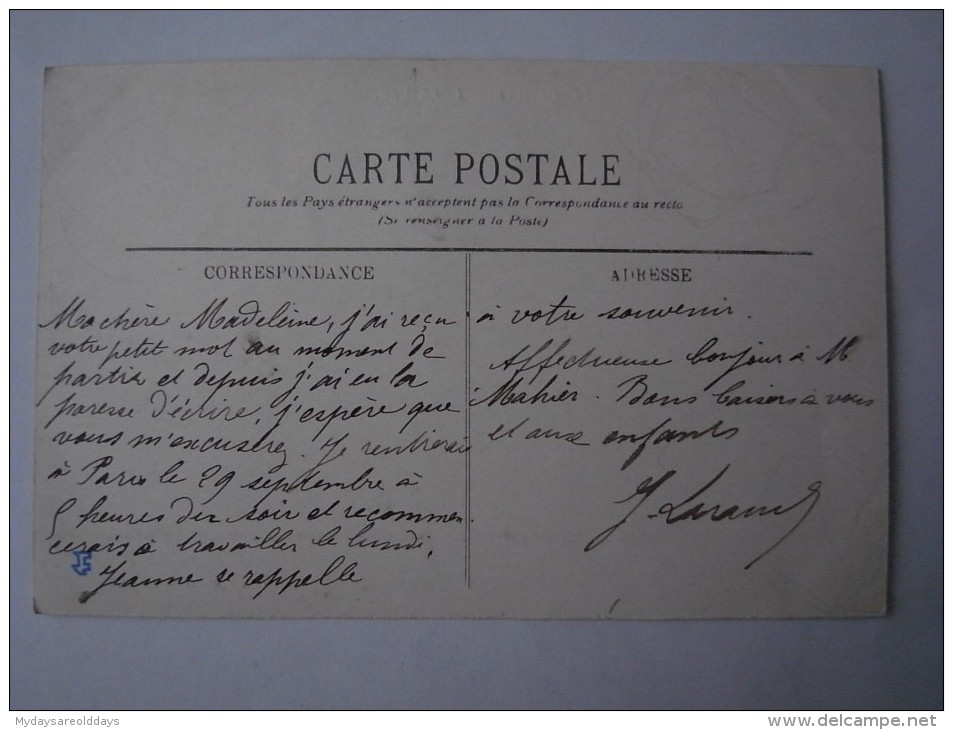 CARTE POSTALE
Tous les Pays étrangers n'acceptent pas la Correspondance au recto
(Se renseigner à la Poste)
CORRESPONDANCE
Ma chère Madeleine, j'ai reçu
votre petit mot au moment de
partir et depuis j'ai eu la
paresse d'écrire, j'espère que
vous m'excuserez. Je rentrerai
à Paris le 29 septembre à
5 heures du soir et recommen
cerais à travailler le lundi.
Jeanne se rappelle
ADRESSE
à votre souvenir.
Affectueuse bonjour à M.
Mahier. Bons baisers à vous
et aux enfants
Mydaysareolddays
www.delcampe.net